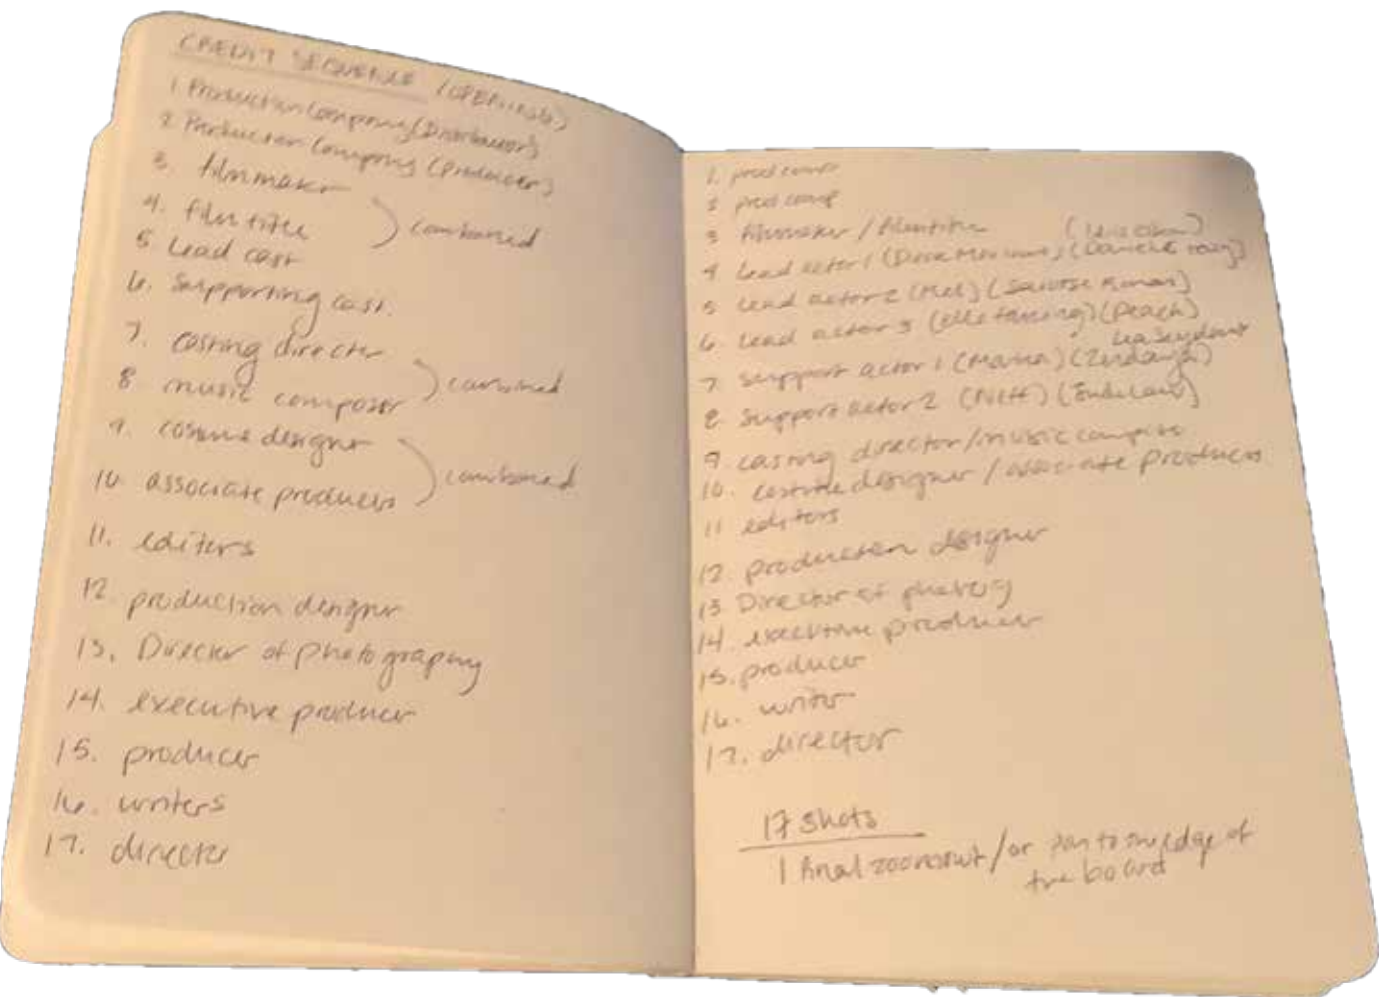 CREDIT SEQUENCE (OPENING)
1 Production Company (Distributor)
2 Production Company (Producer)
3. filmmaker
4. film title
combined
5 Lead cast
6. Supporting cast.
7. casting director
8 music composer
combined
9. costume designer
10 associate producers
combined
11. editors
12. production designer
13. Director of photography
14. executive producer
15. producer
16. writers
17. director
1. prod comp
2 prod comp
3 filmmaker / film title
4 Lead actor 1
5 Lead actor 2 (Mel)
6. Lead actor 3 (elle fanning) (Peach)
7 Support actor 1 (Zendaya)
8 Support actor 2 (Jude Law)
9 casting director/music
10. costume designer / associate producers
11 editors
12. production designer
13 Director of photog
14. executive producer
15. producer
16. writer
17. director
17 shots
1 final zoomout / or pan to edge of
the board